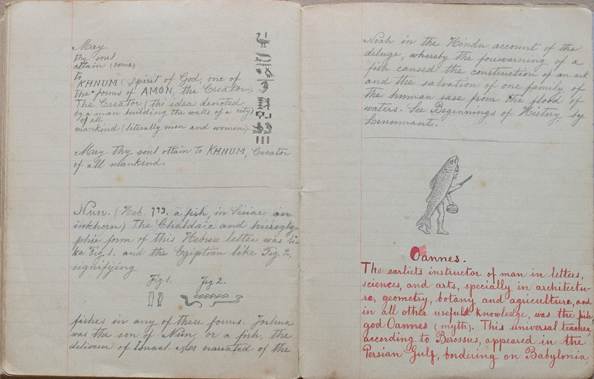 May
the soul
attain (come)
to
KHNUM (spirit of God, one of
the forms of AMON, the Creator.
The Creator (the idea denoted
by a man building the walls of a city)
of all
mankind (literally men and women).
May thy soul attain to KHNUM, Creator
of all mankind.
Nun. (Heb. נון, a fish, in Sinai an
inkhorn) The Chaldaic and hierogly-
phic form of this Hebrew letter was li-
ke Fig. 1. and the Egiptian like Fig. 2,
signifying
Fig 1. Fig 2.
fishes in any of these forms. Joshua
was the son of Nun, or a fish, the
deliverer of Israel. also narrated of the
Noah in the Hindu account of the
deluge, whereby the forewarning of a
fish caused the construction of an ark
and the salvation of one family of
the human race from the flood of
waters. See Beginnings of History by
Lenormant.
Oannes.
The earlists instructor of man in letters,
sciences, and arts, specially in architectu-
re, geometry, botany and agriculture, and
in all other useful knowledge, was the fish
god Oannes (myth). This universal teacher,
according to Berossus, appeared in the
Persian Gulf, bordering on Babylonia